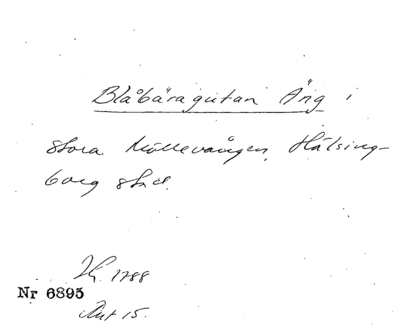 Blåbäragutan Äng i
stora Möllevången, Hälsing-
borg stad.
Lk. 1788
Nr 6895
Akt 15.